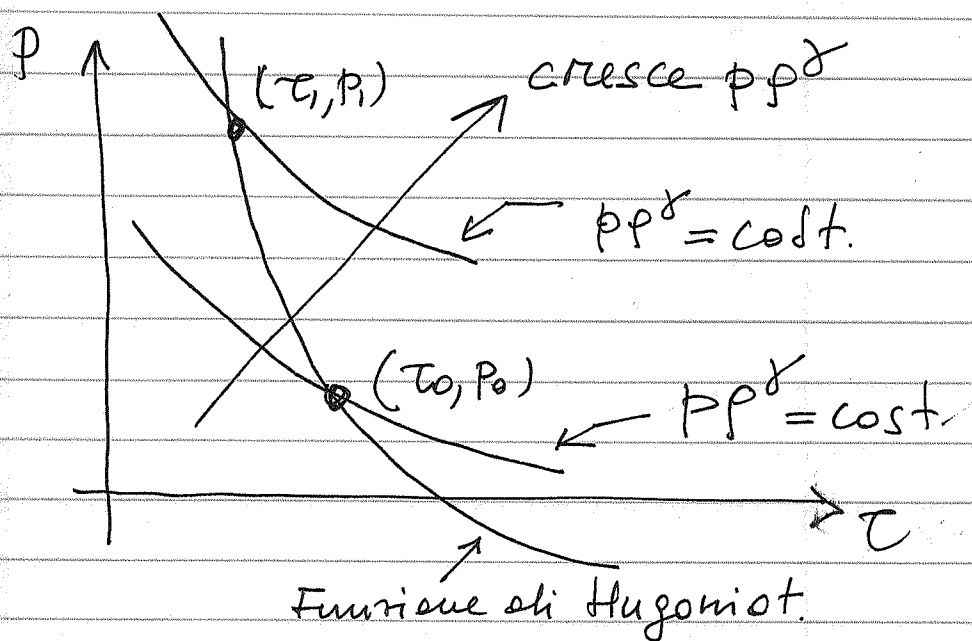 p
(τ₁, p₁)
cresce pρ^γ
pρ^γ = cost.
(τ₀, p₀)
pρ^γ = cost.
τ
Funzione di Hugoniot.